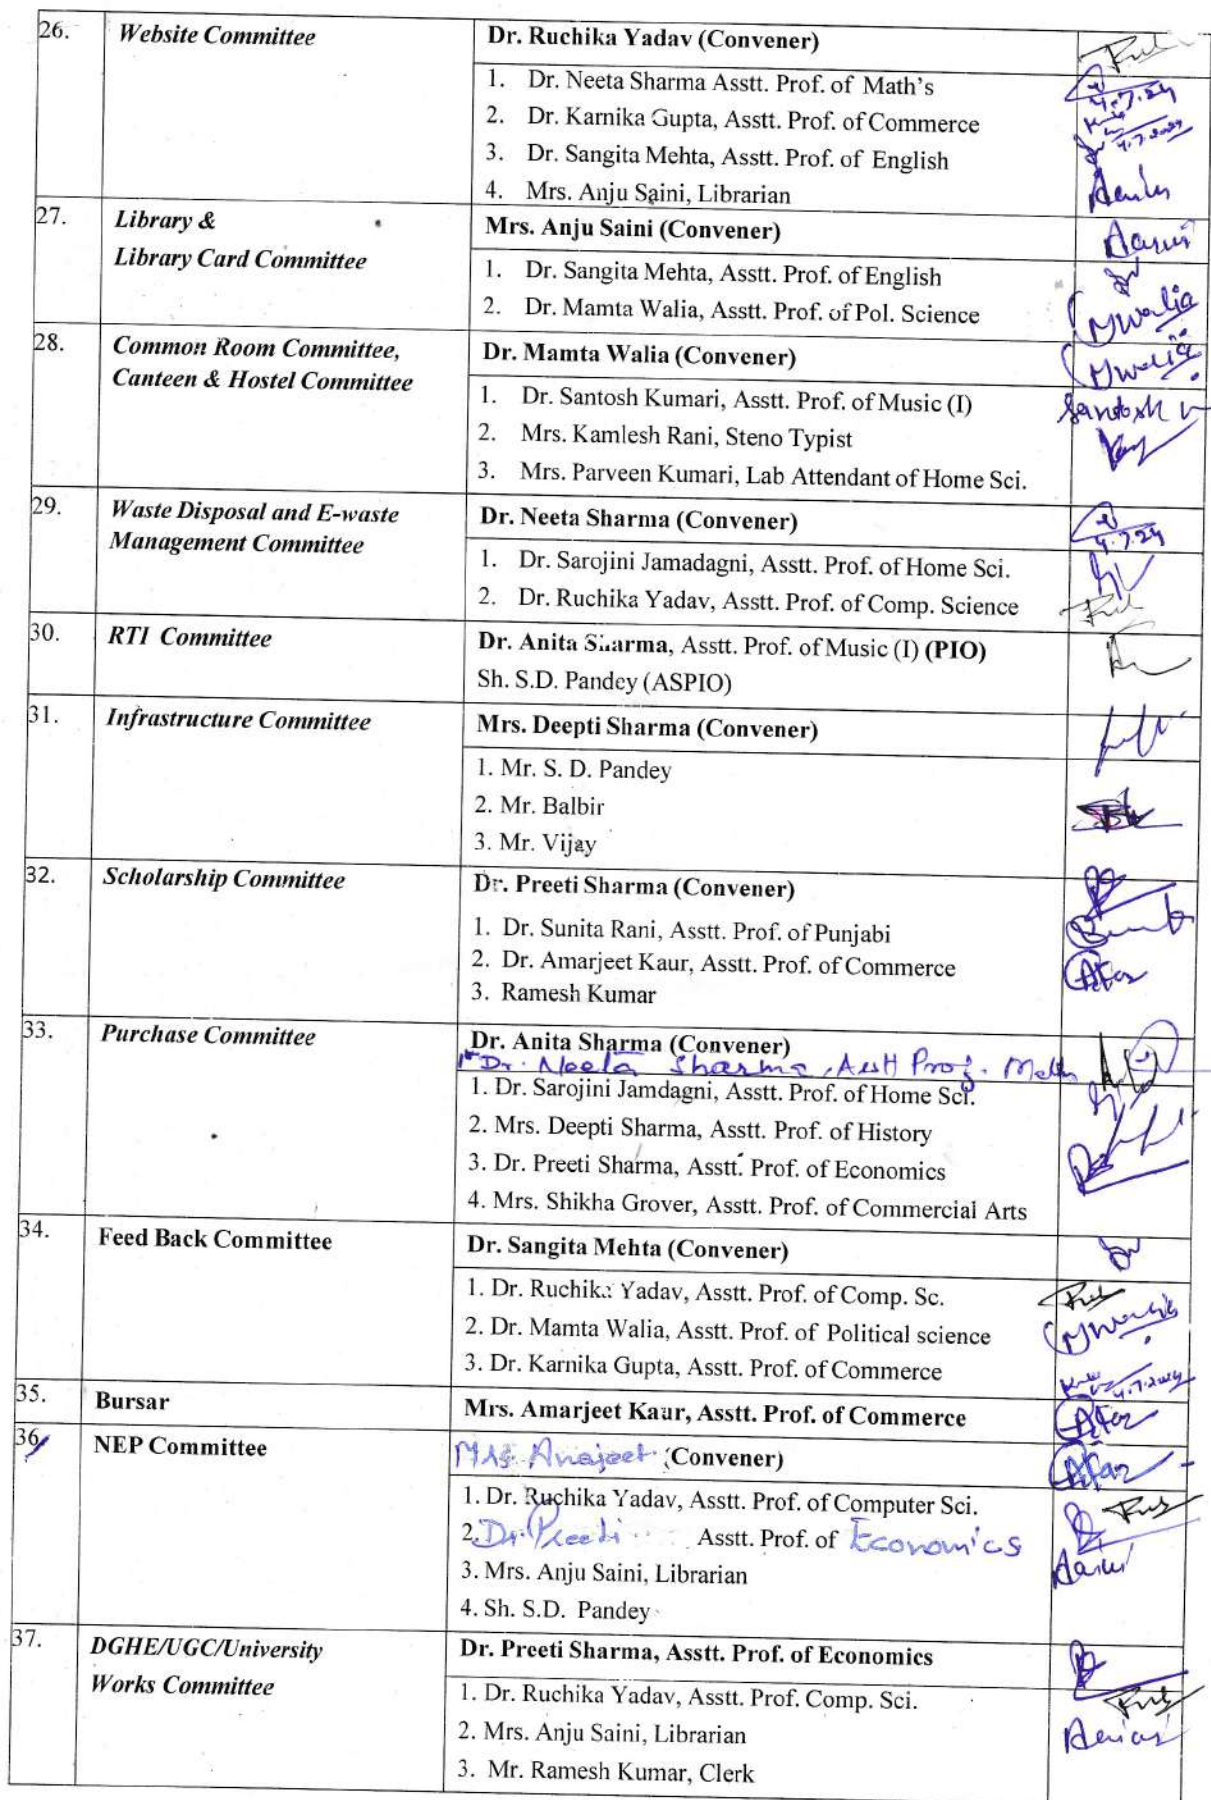 26. Website Committee Dr. Ruchika Yadav (Convener)
1. Dr. Neeta Sharma Asstt. Prof. of Math's
4.7.24
2. Dr. Karnika Gupta, Asstt. Prof. of Commerce
4.7.2024
3. Dr. Sangita Mehta, Asstt. Prof. of English
4. Mrs. Anju Saini, Librarian
27. Library & Mrs. Anju Saini (Convener)
Library Card Committee 1. Dr. Sangita Mehta, Asstt. Prof. of English
2. Dr. Mamta Walia, Asstt. Prof. of Pol. Science MWalia
28. Common Room Committee, Dr. Mamta Walia (Convener) MWalia
Canteen & Hostel Committee 1. Dr. Santosh Kumari, Asstt. Prof. of Music (I) Santosh
2. Mrs. Kamlesh Rani, Steno Typist
3. Mrs. Parveen Kumari, Lab Attendant of Home Sci.
29. Waste Disposal and E-waste Dr. Neeta Sharma (Convener)
4.7.24
Management Committee 1. Dr. Sarojini Jamadagni, Asstt. Prof. of Home Sci.
2. Dr. Ruchika Yadav, Asstt. Prof. of Comp. Science
30. RTI Committee Dr. Anita Sharma, Asstt. Prof. of Music (I) (PIO)
Sh. S.D. Pandey (ASPIO)
31. Infrastructure Committee Mrs. Deepti Sharma (Convener)
1. Mr. S. D. Pandey
2. Mr. Balbir
3. Mr. Vijay
32. Scholarship Committee Dr. Preeti Sharma (Convener)
1. Dr. Sunita Rani, Asstt. Prof. of Punjabi
2. Dr. Amarjeet Kaur, Asstt. Prof. of Commerce
3. Ramesh Kumar
33. Purchase Committee Dr. Anita Sharma (Convener)
Dr. Neeta Sharma, Asstt Prof. Math
1. Dr. Sarojini Jamdagni, Asstt. Prof. of Home Sci.
2. Mrs. Deepti Sharma, Asstt. Prof. of History
3. Dr. Preeti Sharma, Asstt. Prof. of Economics
4. Mrs. Shikha Grover, Asstt. Prof. of Commercial Arts
34. Feed Back Committee Dr. Sangita Mehta (Convener)
1. Dr. Ruchika Yadav, Asstt. Prof. of Comp. Sc.
2. Dr. Mamta Walia, Asstt. Prof. of Political science MWalia
3. Dr. Karnika Gupta, Asstt. Prof. of Commerce
4.7.2024
35. Bursar Mrs. Amarjeet Kaur, Asstt. Prof. of Commerce
36. NEP Committee Mrs. (Convener)
1. Dr. Ruchika Yadav, Asstt. Prof. of Computer Sci.
2. Dr. Preeti Asstt. Prof. of Economics
3. Mrs. Anju Saini, Librarian
4. Sh. S.D. Pandey
37. DGHE/UGC/University Dr. Preeti Sharma, Asstt. Prof. of Economics
Works Committee 1. Dr. Ruchika Yadav, Asstt. Prof. Comp. Sci.
2. Mrs. Anju Saini, Librarian
3. Mr. Ramesh Kumar, Clerk